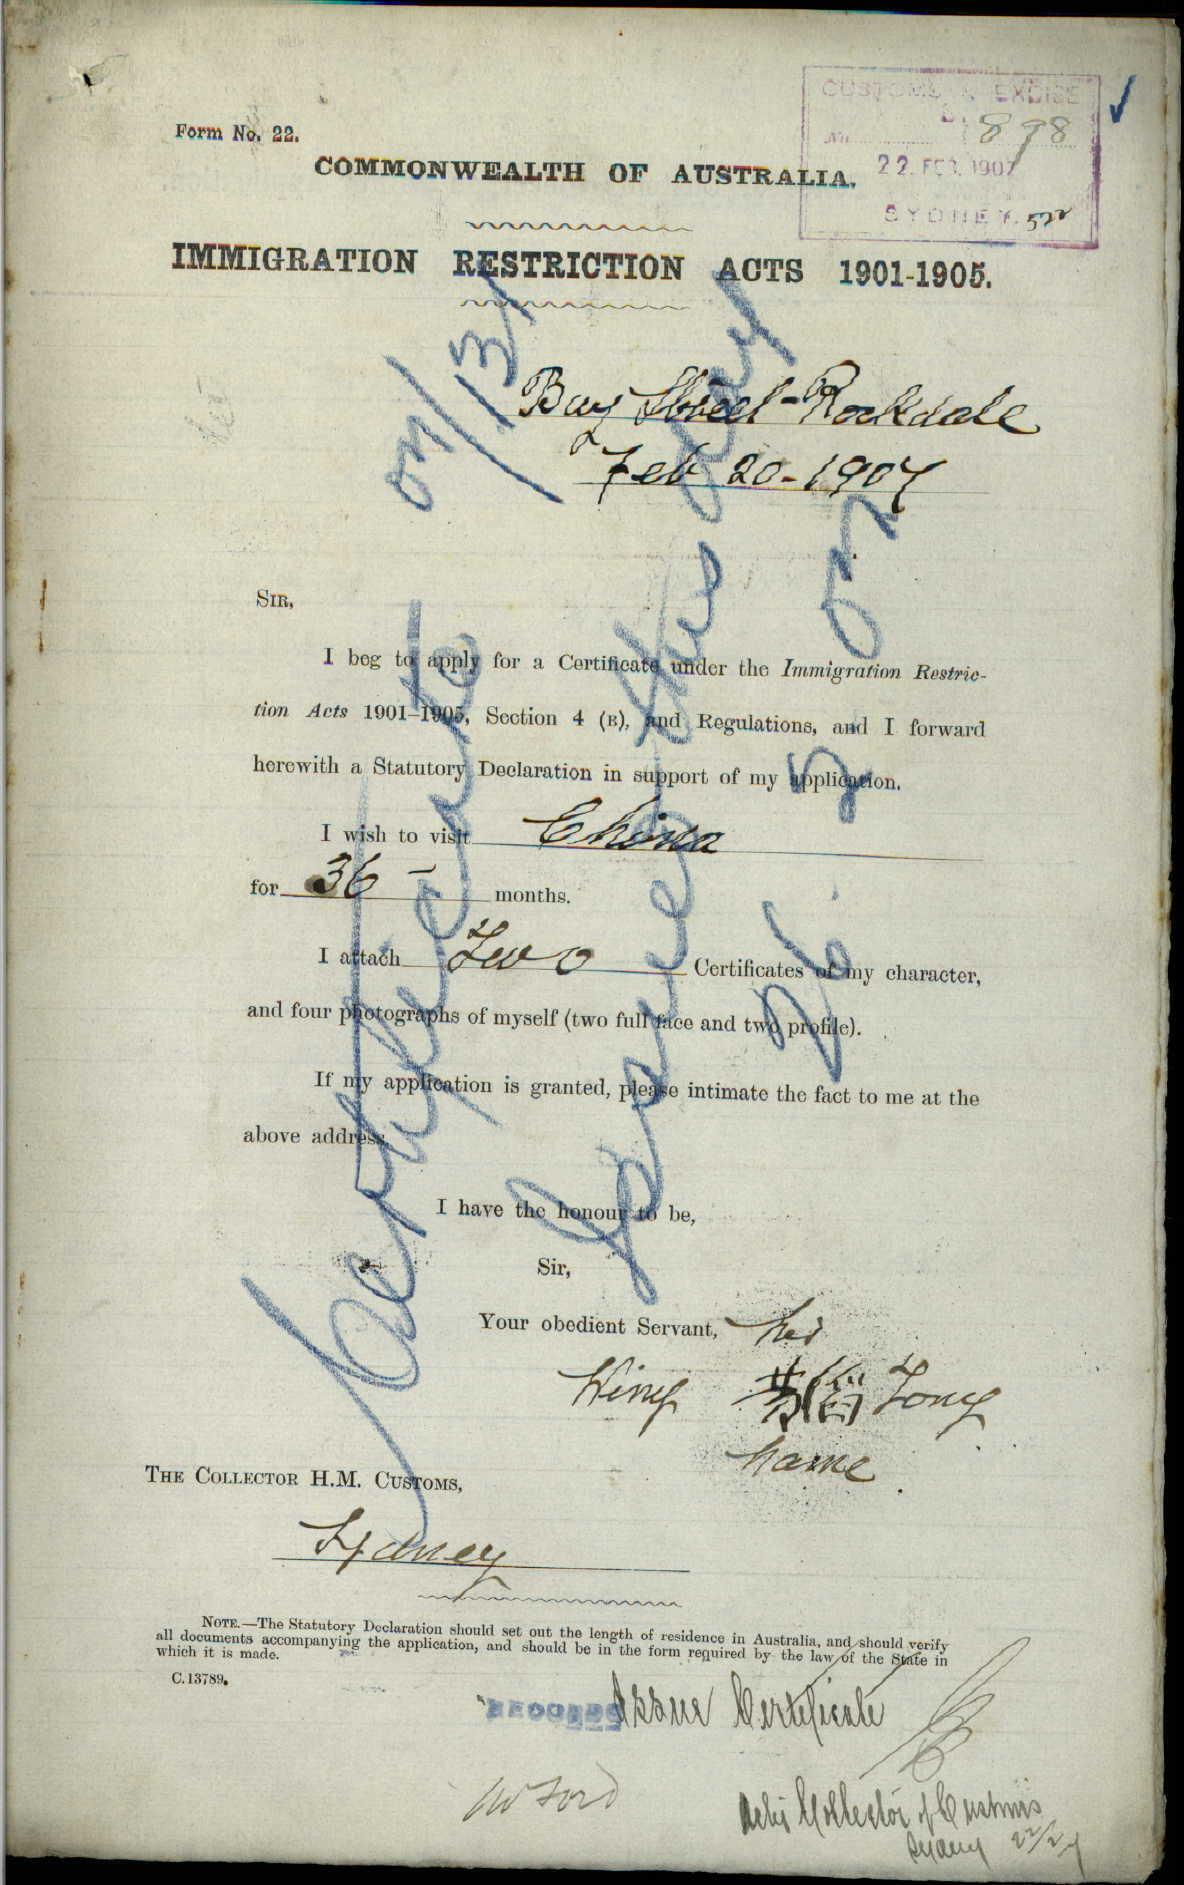 CUSTOMS & EXCISE
898
22. FEB. 1907
SYDNEY.
Form No. 22.
COMMONWEALTH OF AUSTRALIA.
IMMIGRATION RESTRICTION ACTS 1901-1905.
Bay Street - Rockdale
Feb 20 - 1907
SIR,
I beg to apply for a Certificate under the Immigration Restric-
tion Acts 1901-1905, Section 4 (B), and Regulations, and I forward
herewith a Statutory Declaration in support of my application.
I wish to visit China
for 36 - months.
I attach Two Certificates of my character,
and four photographs of myself (two full face and two profile).
If my application is granted, please intimate the fact to me at the
above address.
I have the honour to be,
Sir,
Your obedient Servant, his
Wing Tong
name
THE COLLECTOR H.M. CUSTOMS,
Sydney
NOTE.—The Statutory Declaration should set out the length of residence in Australia, and should verify
all documents accompanying the application, and should be in the form required by the law of the State in
which it is made.
C.13789.
RECORDS
Issue Certificate
Actg Collector of Customs
Sydney 22/2/7
Certificate
issued this day